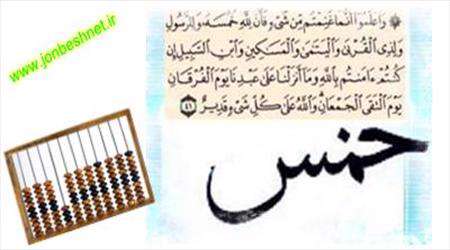 www.jonbeshnet.ir
وَاعْلَمُوا أَنَّمَا غَنِمْتُم مِّن شَيْءٍ فَأَنَّ لِلَّهِ خُمُسَهُ وَلِلرَّسُولِ
وَلِذِي الْقُرْبَىٰ وَالْيَتَامَىٰ وَالْمَسَاكِينِ وَابْنِ السَّبِيلِ إِن
كُنتُمْ ءَامَنتُم بِاللَّهِ وَمَا أَنزَلْنَا عَلَىٰ عَبْدِنَا يَوْمَ الْفُرْقَانِ
يَوْمَ الْتَقَى الْجَمْعَانِ وَاللَّهُ عَلَىٰ كُلِّ شَيْءٍ قَدِيرٌ ٤١
خمس